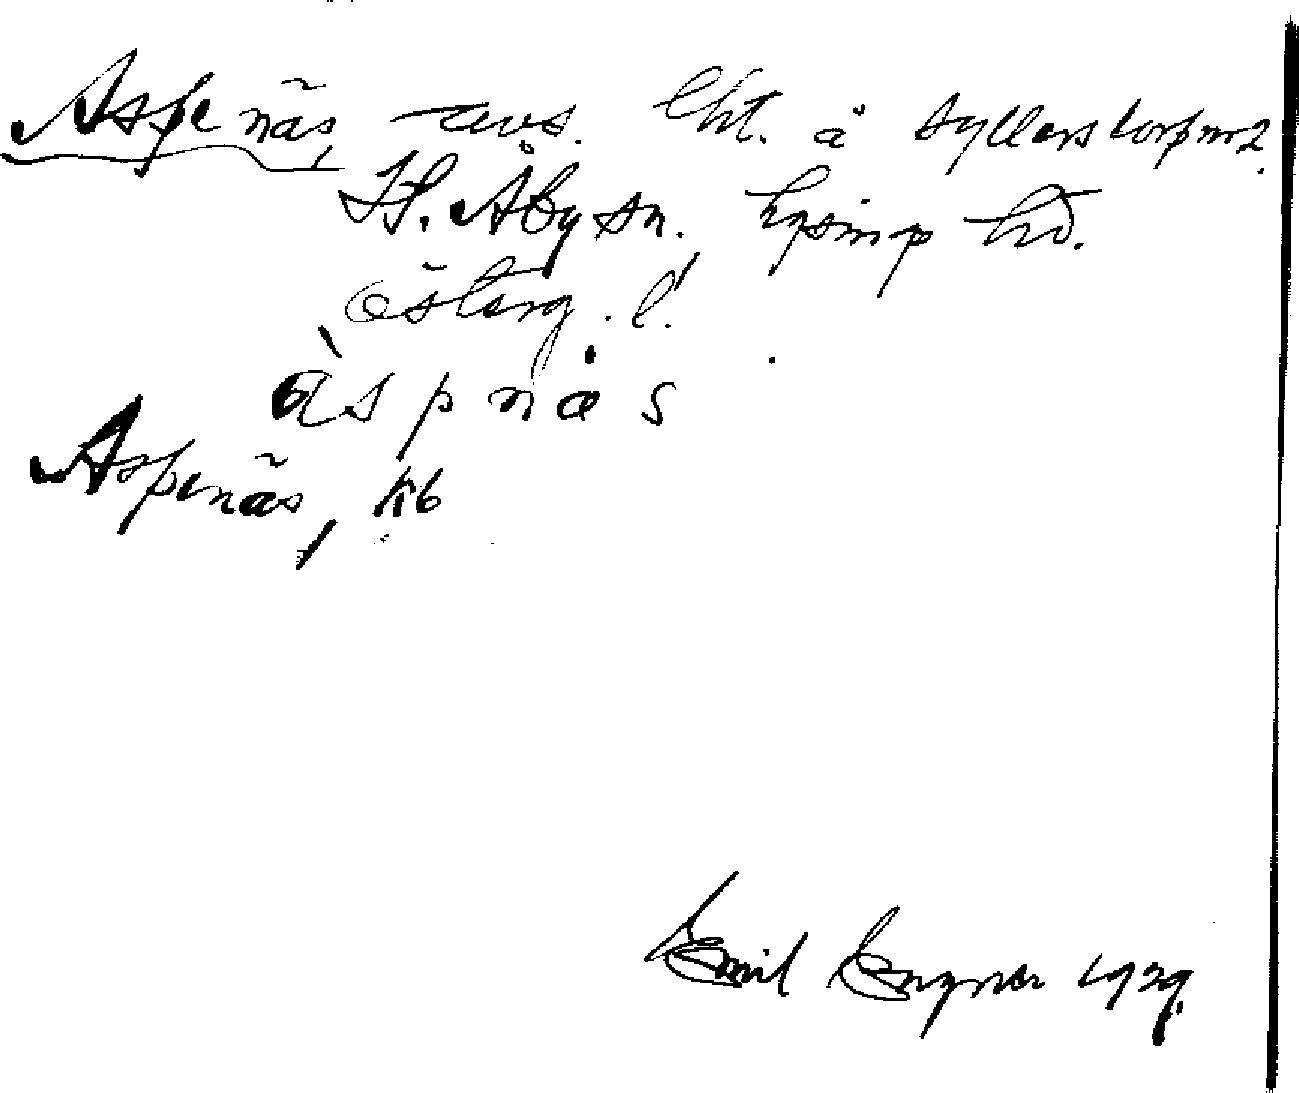 Aspenäs, avs. lht. å Syllerstorp nr 2.
St. Åby sn., Lysings hd.
Österg. l.
àspnäs
Aspenäs, Kb
Emil Engner 1929.